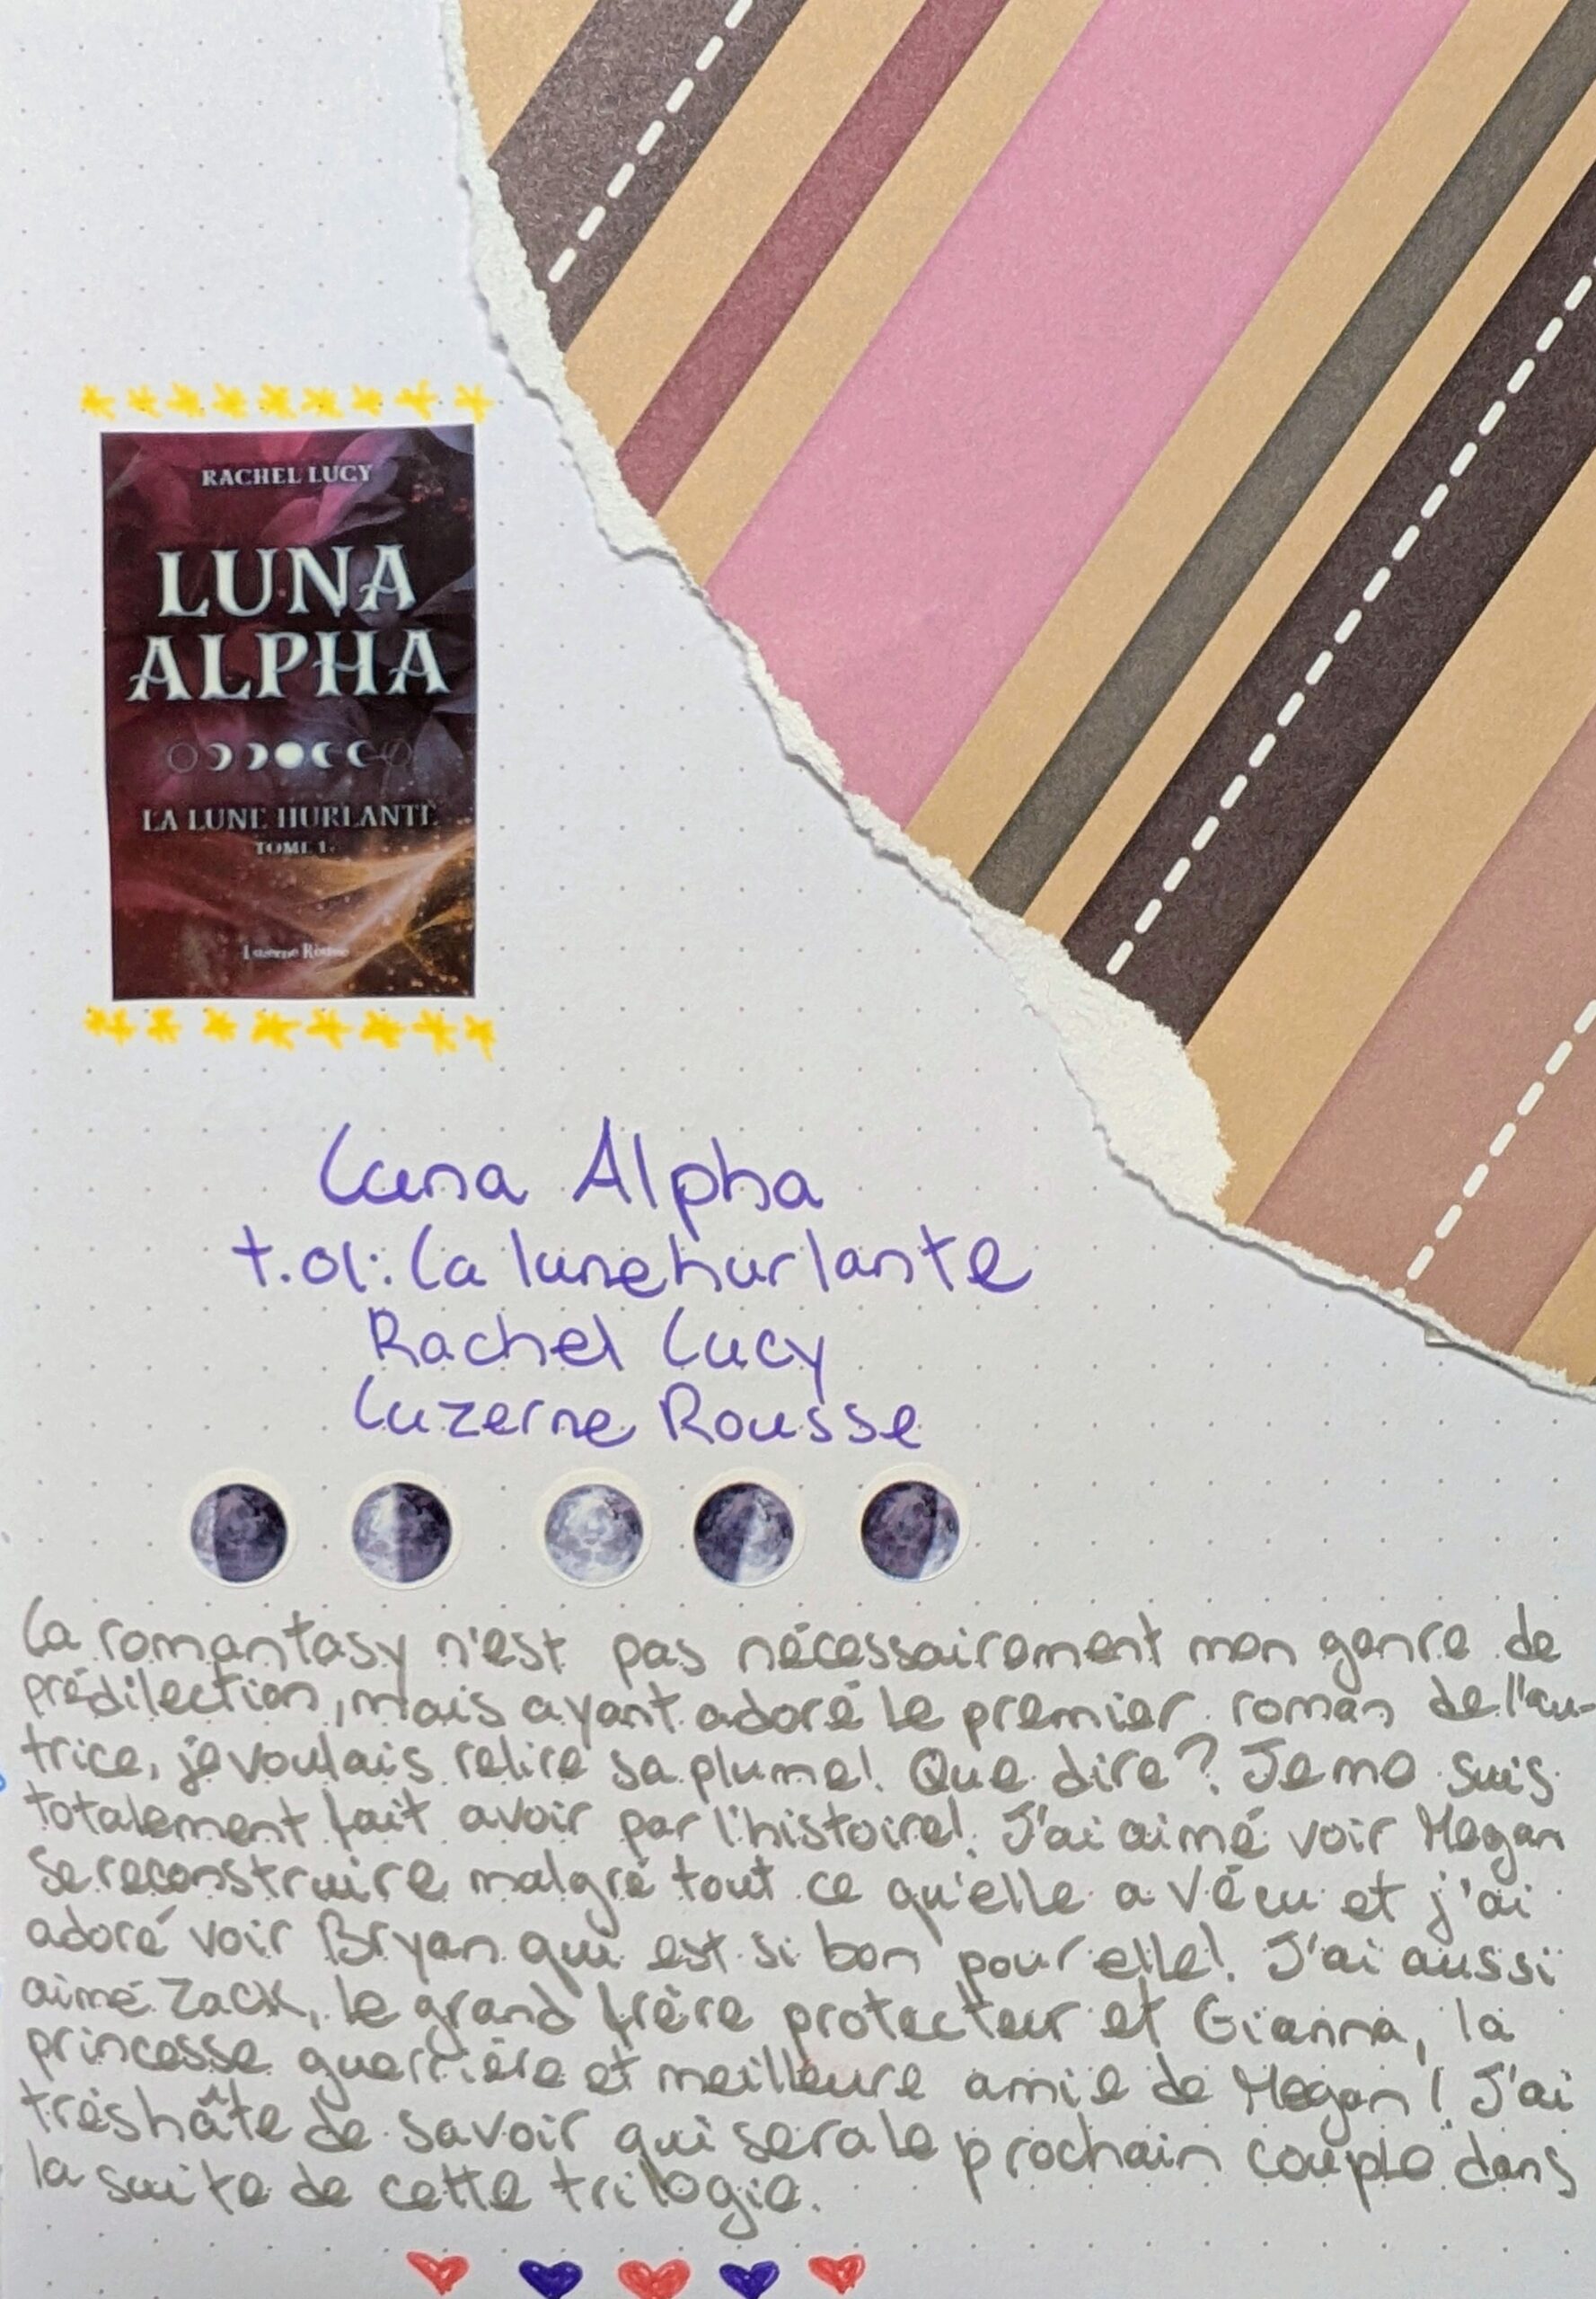 RACHEL LUCY
LUNA
ALPHA
LA LUNE HURLANTE
TOME 1
Luzerne Rousse
Luna Alpha
t.01: La lune hurlante
Rachel Lucy
Luzerne Rousse
La romantasy n'est pas nécessairement mon genre de
prédilection, mais ayant adoré le premier roman de l'au-
trice, je voulais relire sa plume! Que dire? Je me suis
totalement fait avoir par l'histoire! J'ai aimé voir Megan
se reconstruire malgré tout ce qu'elle a vécu et j'ai
adoré voir Bryan qui est si bon pour elle! J'ai aussi
aimé Zack, le grand frère protecteur et Gianna, la
princesse guerrière et meilleure amie de Megan! J'ai
très hâte de savoir qui sera le prochain couple dans
la suite de cette trilogie.